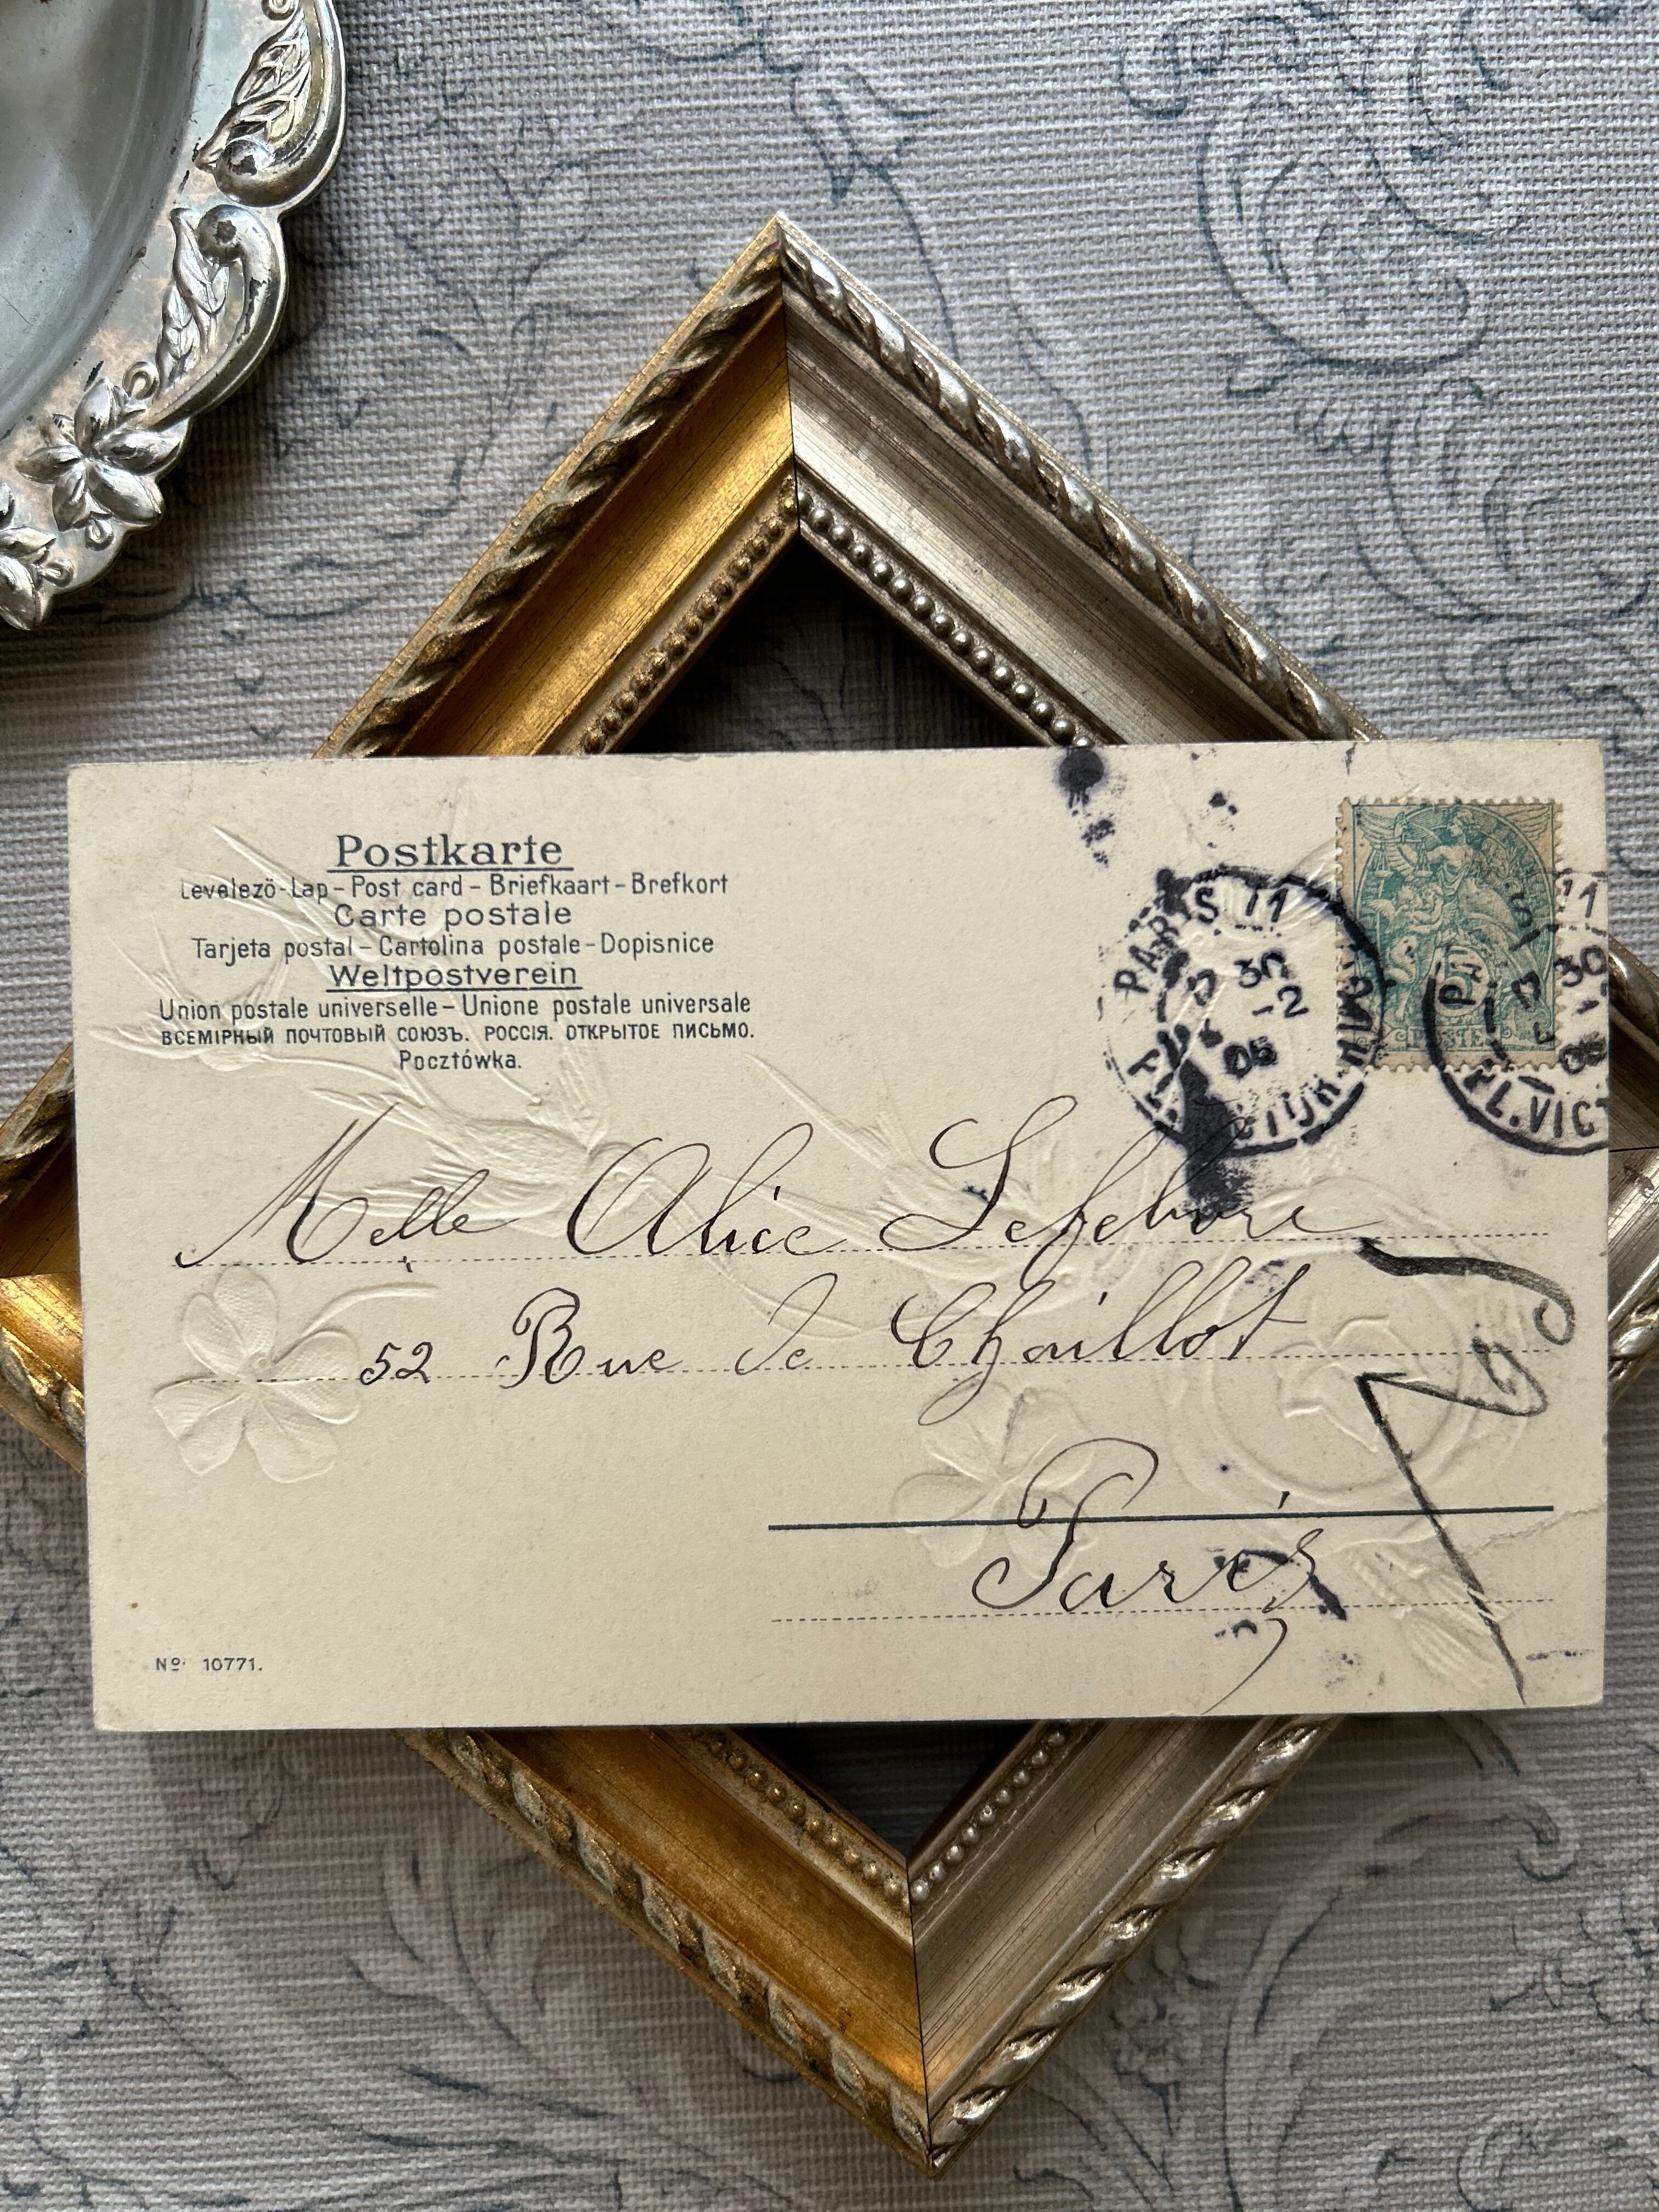 Postkarte
Levelezö-Lap – Post card – Briefkaart – Brefkort
Carte postale
Tarjeta postal – Cartolina postale – Dopisnice
Weltpostverein
Union postale universelle – Unione postale universale
ВСЕМІРНЫЙ ПОЧТОВЫЙ СОЮЗЪ. РОССІЯ. ОТКРЫТОЕ ПИСЬМО.
Pocztówka.
PARIS 11
30
-2
05
11
30
PL. VICT
POSTE
Melle Alice Lefebvre
52 Rue de Chaillot
Paris
No. 10771.